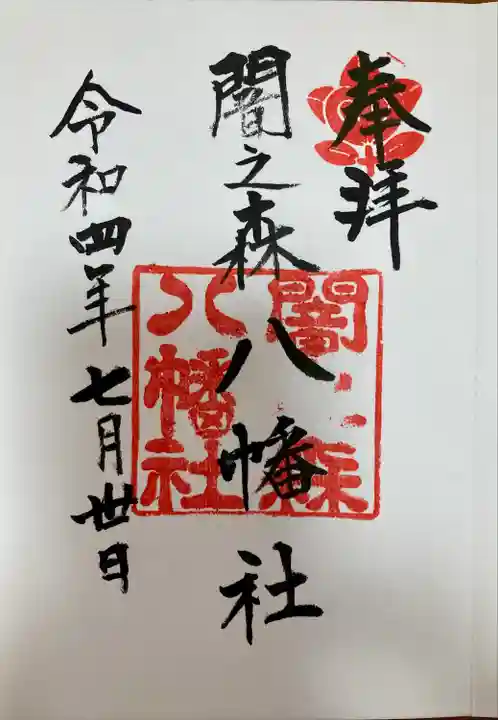 奉拝
闇之森八幡社
令和四年七月丗日
闇之森
八幡社